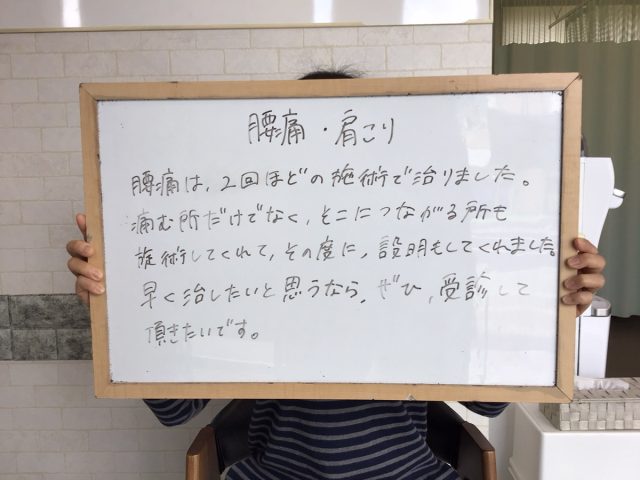 腰痛・肩こり
腰痛は、2回ほどの施術で治りました。
痛む所だけでなく、そこにつながる所も
施術してくれて、その度に、説明もしてくれました。
早く治したいと思うなら、ぜひ、受診して
頂きたいです。